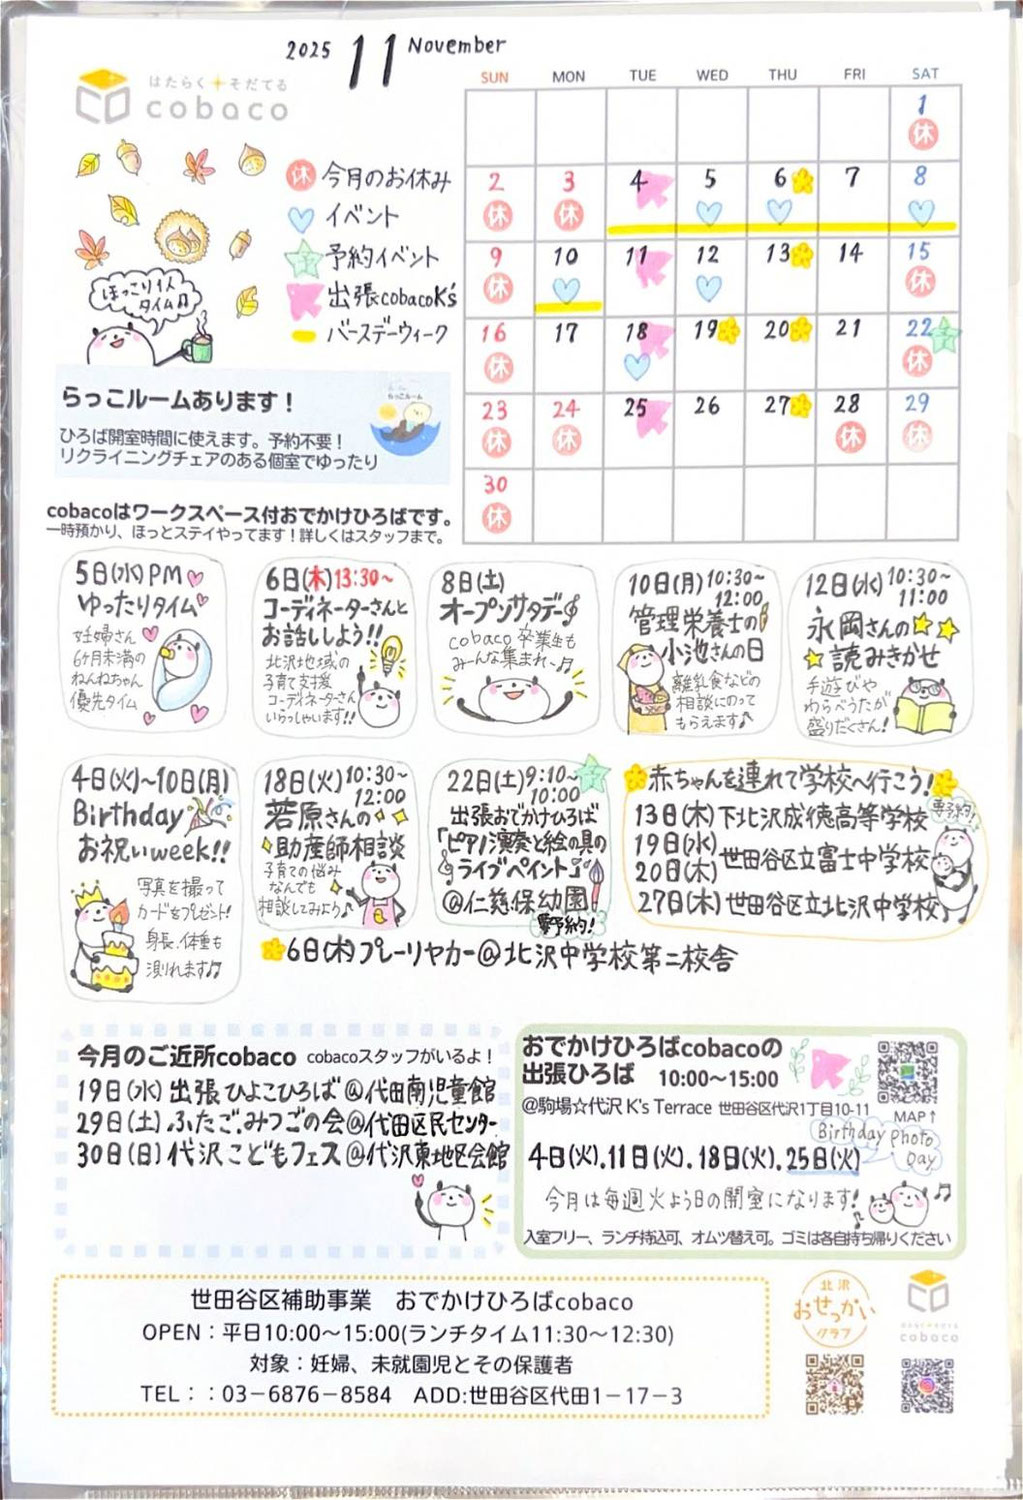 2025 11 November
はたらく+そだてる
cobaco
SUN MON TUE WED THU FRI SAT
1
休
2 3 4 5 6 7 8
休 休
9 10 11 12 13 14 15
休 休
16 17 18 19 20 21 22 予
休 休
23 24 25 26 27 28 29
休 休 休 休
30
休
休 今月のお休み
イベント
予 予約イベント
出張cobacoK's
バースデーウィーク
ほっこり1人
タイム♫
らっこルームあります！
ひろば開室時間に使えます。予約不要！
リクライニングチェアのある個室でゆったり
らっこルーム
cobacoはワークスペース付おでかけひろばです。
一時預かり、ほっとステイやってます！詳しくはスタッフまで。
5日(水)PM
ゆったりタイム
妊婦さん
6ヶ月未満の
ねんねちゃん
優先タイム
6日(木)13:30～
コーディネーターさんと
お話ししよう!!
北沢地域の
子育て支援
コーディネーターさん
いらっしゃいます!!
8日(土)
オープンサタデー
cobaco卒業生も
みーんな集まれ～♫
10日(月)10:30～
12:00
管理栄養士の
小池さんの日
離乳食などの
相談にのって
もらえます♪
12日(水)10:30～
11:00
永岡さんの
読みきかせ
手遊びや
わらべうたが
盛りだくさん!
4日(火)～10日(月)
Birthday
お祝いweek!!
写真を撮って
カードをプレゼント!
身長、体重も
測れます♫
18日(火)10:30～
12:00
若原さんの
助産師相談
子育ての悩み
なんでも
相談してみよう♪
22日(土)9:10～
10:00
予
出張おでかけひろば
「ピアノ演奏と絵の具の
ライブペイント」
@仁慈保幼園
要予約!
赤ちゃんを連れて学校へ行こう!
要予約!
13日(木)下北沢成徳高等学校
19日(水)
20日(木)世田谷区立富士中学校
27日(木)世田谷区立北沢中学校
6日(木)プレーリヤカー@北沢中学校第二校舎
今月のご近所cobaco cobacoスタッフがいるよ！
19日(水)出張ひよこひろば@代田南児童館
29日(土)ふたごみつごの会@代田区民センター
30日(日)代沢こどもフェス@代沢東地区会館
おでかけひろばcobacoの
出張ひろば 10:00～15:00
@駒場☆代沢 K's Terrace 世田谷区代沢1丁目10-11
MAP↑
Birthday photo
Day
4日(火).11日(火).18日(火).25日(火)
今月は毎週火よう日の開室になります!
入室フリー、ランチ持込可、オムツ替え可。ゴミは各自持ち帰りください
世田谷区補助事業 おでかけひろばcobaco
OPEN：平日10:00～15:00(ランチタイム11:30～12:30)
対象：妊婦、未就園児とその保護者
TEL：：03－6876－8584 ADD:世田谷区代田1－17－3
北沢
おせっかい
クラブ
はたらく+そだてる
cobaco